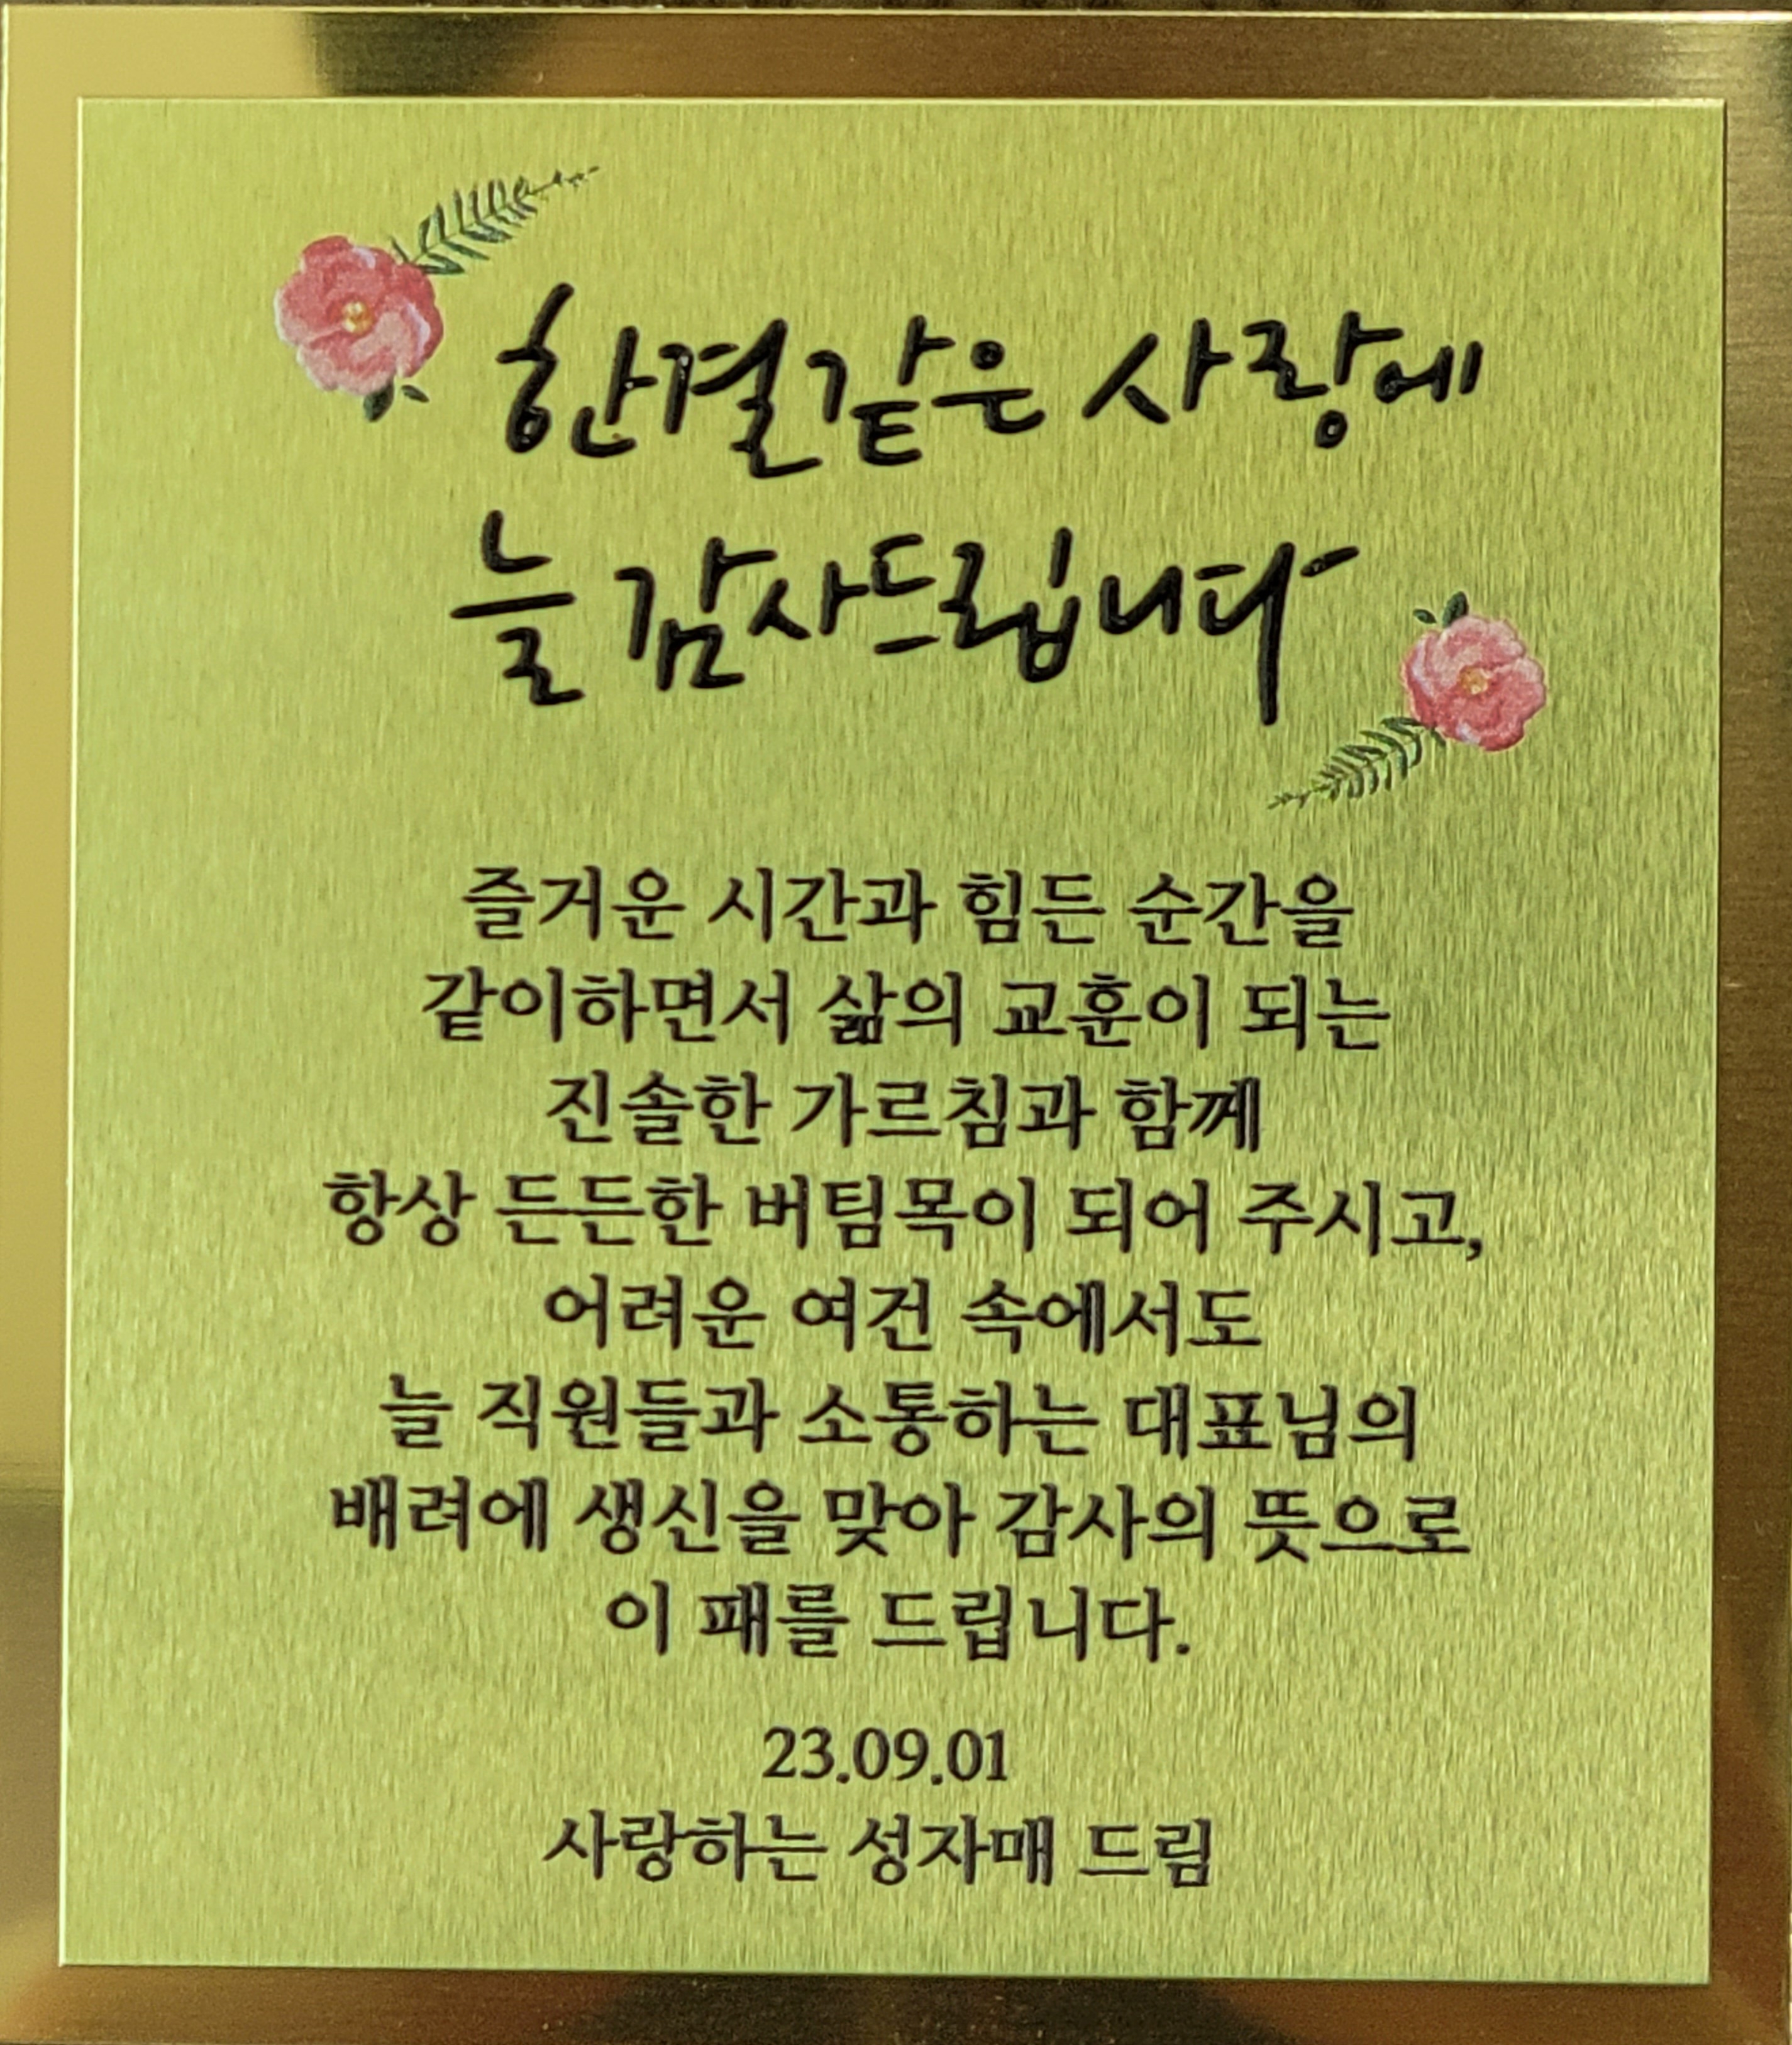 한결같은 사랑에
늘 감사드립니다
즐거운 시간과 힘든 순간을
같이하면서 삶의 교훈이 되는
진솔한 가르침과 함께
항상 든든한 버팀목이 되어 주시고,
어려운 여건 속에서도
늘 직원들과 소통하는 대표님의
배려에 생신을 맞아 감사의 뜻으로
이 패를 드립니다.
23.09.01
사랑하는 성자매 드림